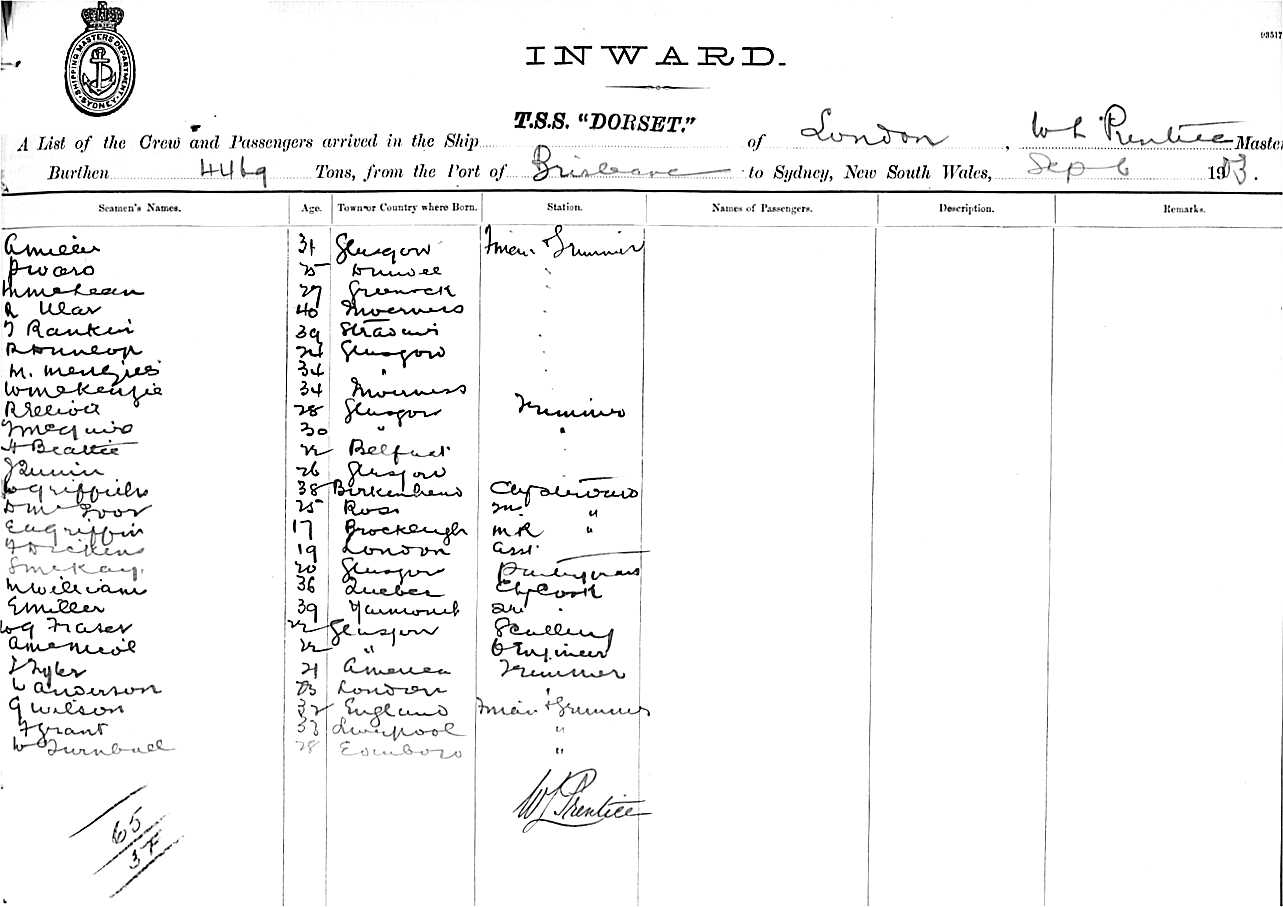 SHIPPING MASTERS DEPARTMENT
SYDNEY
INWARD.
T.S.S. "DORSET."
A List of the Crew and Passengers arrived in the Ship of London, W L Prentice Master
Burthen 4469 Tons, from the Port of Brisbane to Sydney, New South Wales, Sep 6 19
Seamen's Names. Age. Town or Country where Born. Station. Names of Passengers. Description. Remarks.
A Miller 31 Glasgow & Trimmer
25 Dundee
M McLean 27 Greenock
R 40 Inverness
T Rankin 39
R Dunlop Glasgow
M. Menzies 34 "
W McKenzie 34 Inverness
R Elliott 28 Glasgow Trimmer
McGuire 30 "
H Beattie 22 Belfast
J 26 Glasgow
W Griffiths 38 Birkenhead
D 25 Ross "
E A Griffin 17 M R "
F Dickens 19 London Asst
S McKay. 20 Glasgow
M William 36 Quebec Cook
E Miller 39 Yarmouth
W G Fraser 22 Glasgow
A McNeil 22 " Engineer
Tyler 21 America Trimmer
Anderson London
G Wilson 32 England & Trimmer
F Grant 33 Liverpool "
W Turnbull 28 Edinboro "
W L Prentice
65
37